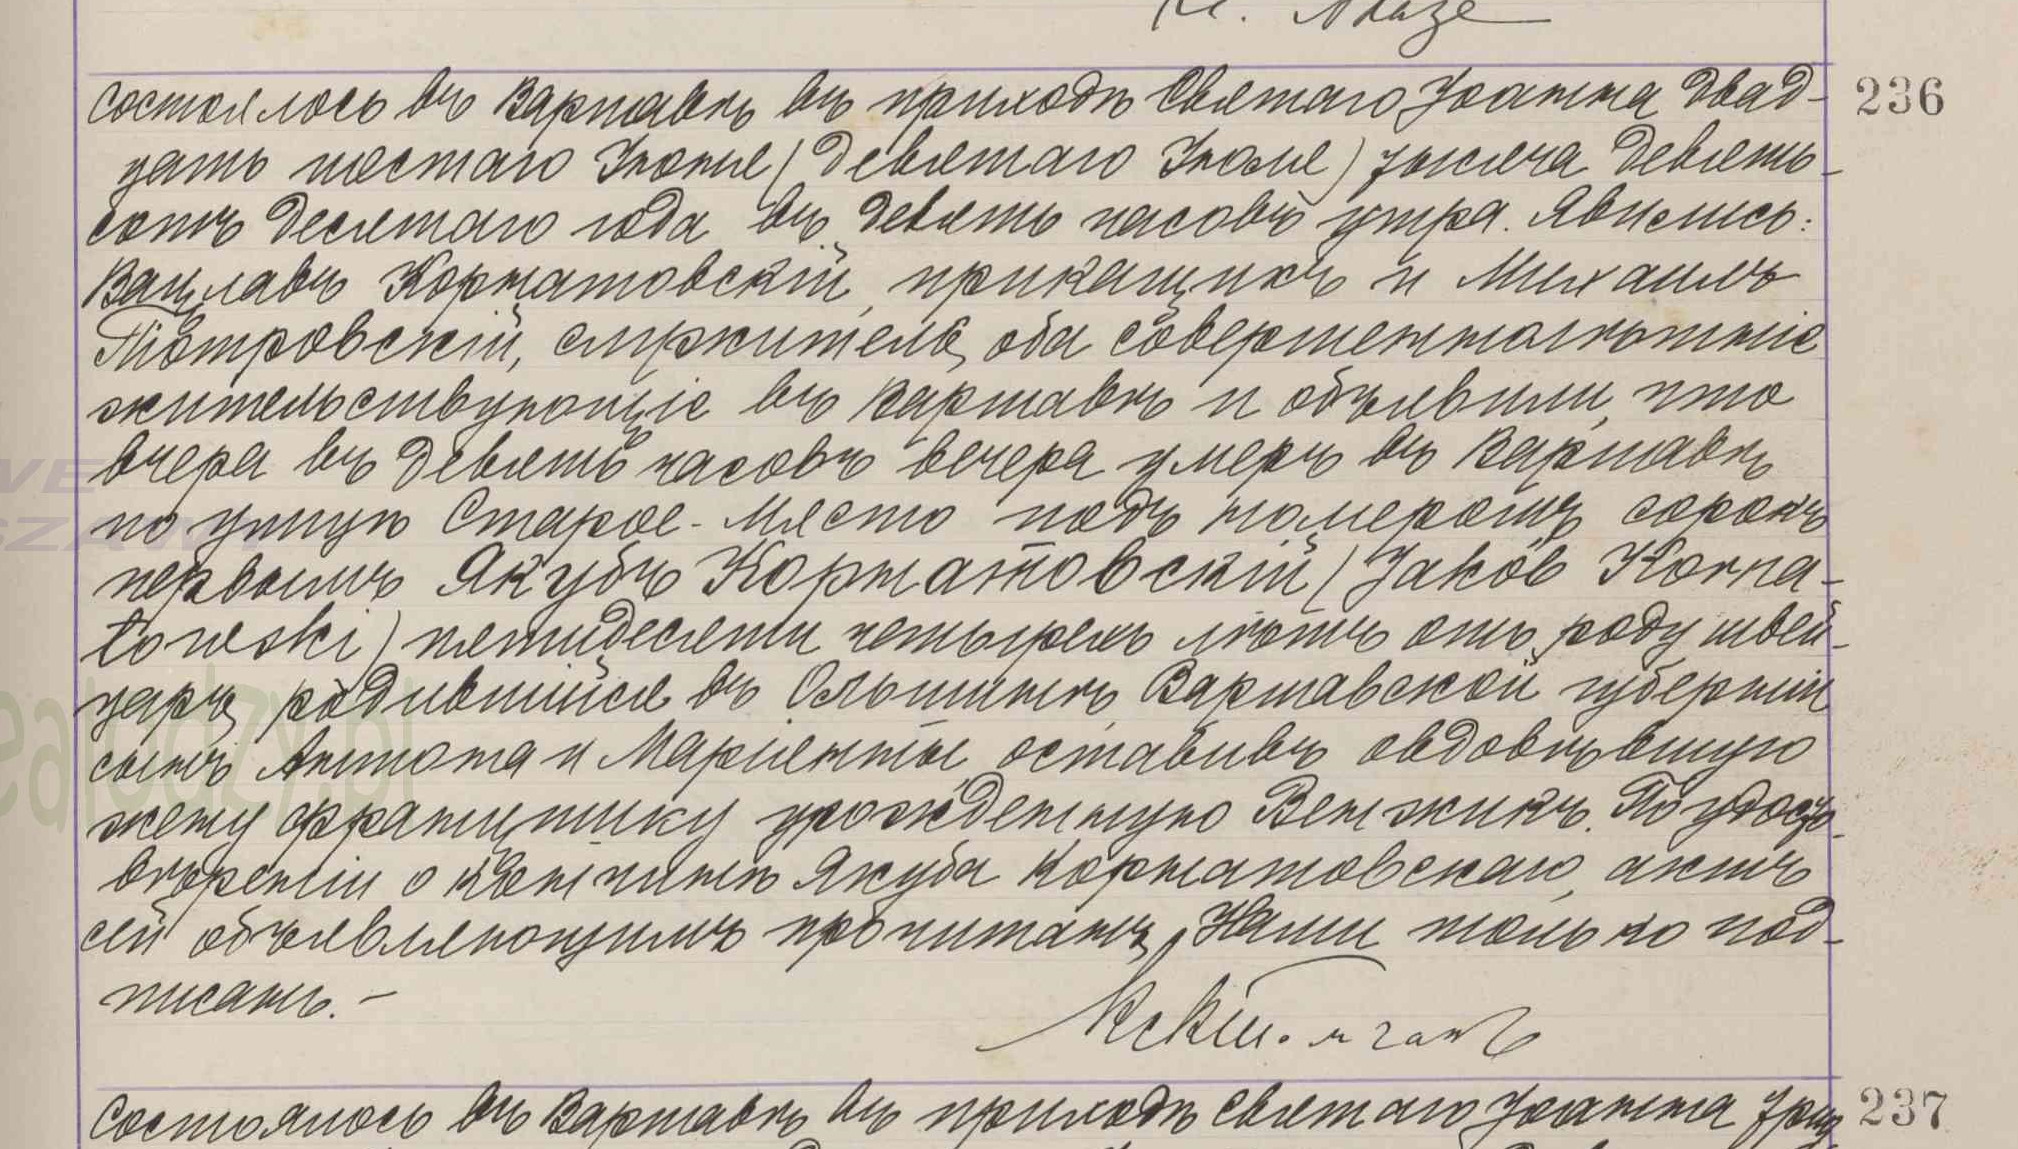 состоялось въ Варшавѣ въ приходѣ Святаго Іоанна двад-
236
цать шестаго Іюня (девятаго Іюля) тысяча девять-
сотъ десятаго года въ девять часовъ утра. Явились:
Вацлавъ Корнатовскій, прикащикъ и Михаилъ
Піотровскій, служитель, оба совершеннолѣтніе
жительствующіе въ Варшавѣ и объявили, что
вчера въ девять часовъ вечера умеръ въ Варшавѣ
по улицѣ Старое-Място подъ номеромъ сорокъ
первымъ Якубъ Корнатовскій (Jakób Korna-
towski) пятидесяти четырехъ лѣтъ отъ роду швей-
царъ, родившійся въ Ольшинѣ, Варшавской губерніи
сынъ Антона и Маріянны, оставивъ овдовѣвшую
жену Францишку урожденную Венжикъ. По удосто-
вѣреніи о кончинѣ Якуба Корнатовскаго, актъ
сей объявляющимъ прочитанъ, Нами только под-
писанъ. –
237
Состоялось въ Варшавѣ въ приходѣ Святаго Іоанна